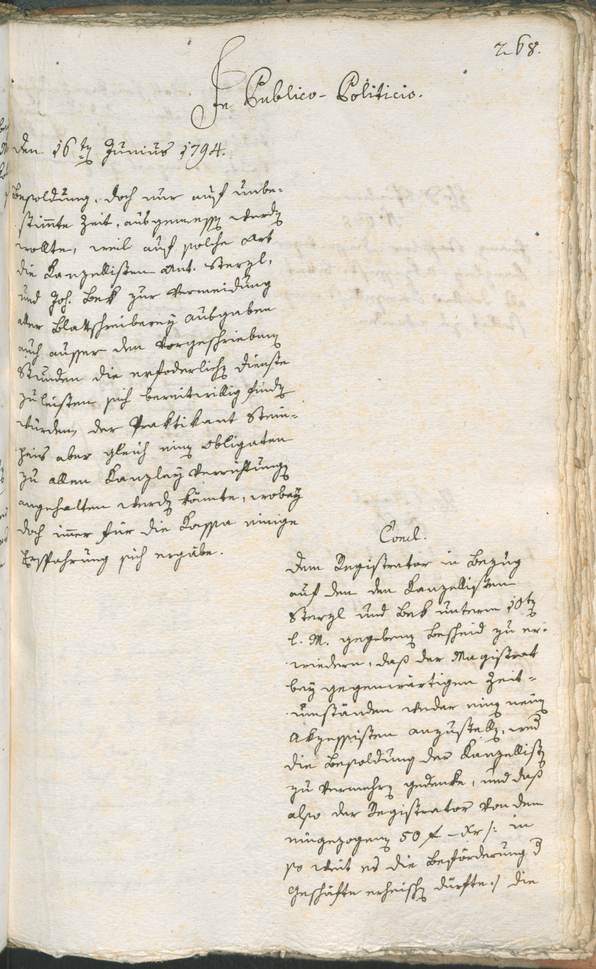 268.
In Publico-Politicis.
den 16ten Junius 1794.
Besoldung, doch nur auf unbe-
stimmte Zeit, ausgemessen werden
wollte, weil auf solche Art
die Kanzellisten Ant. Sterzl,
und Joh. Bek zur Vermeidung
aller Blattschreiberey Ausgaben
auch ausser den vorgeschriebenen
Stunden die erfoderlichen Dienste
zu leisten sich bereitwillig finden
würden, der Praktikant Stein-
haus aber gleich einem obligaten
zu allen Kanzley Verrichtungen
angehalten werden könnte, wobey
doch immer für die Kassa einige
Ersparung sich ergäbe.
Concl.
Dem Registrator in Bezug
auf den den Kanzellisten
Sterzl und Bek unterm 10ten
l. M. gegebenen Bescheid zu er-
wiedern, daß der Magistrat
bey gegenwärtigen Zeit-
umständen weder einen neuen
Akzessisten anzustellen, weder
die Besoldung der Kanzellisten
zu vermehren gedenke, und daß
also der Registrator von den
eingezogenen 50 f – Xr /: in
so weit es die Beförderung der
Geschäfte erheischen dürfte :/ die